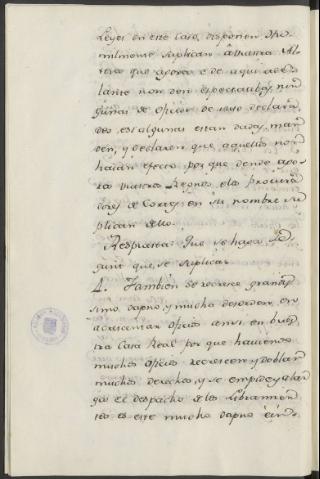 Leyes en este caso disponen, Hu-
milmente suplican á Vuestra Al-
teza que agora e de aqui ade-
lante non den espectatibas nin-
gunas de oficios de suso declara-
dos, e si algunas estan dadas, man-
den, y declaren que aquellas non
hayan efecto, por que dende ago-
ra vuestros Reynos, e los procura-
dores de Cortes en su nombre su-
plican dello.
Respuesta: Que se haga se-
gunt que se suplica.
4. Tambien se recrece grandi-
simo dapno, y mucho desorden en
acrescentar oficios ansi en vues-
tra Casa Real por que haviendo
muchos oficios recrescen, y doblan
muchos derechos, y se empide, y alar-
ga el despacho de los Libramien-
tos es este mucho dapno, é in-